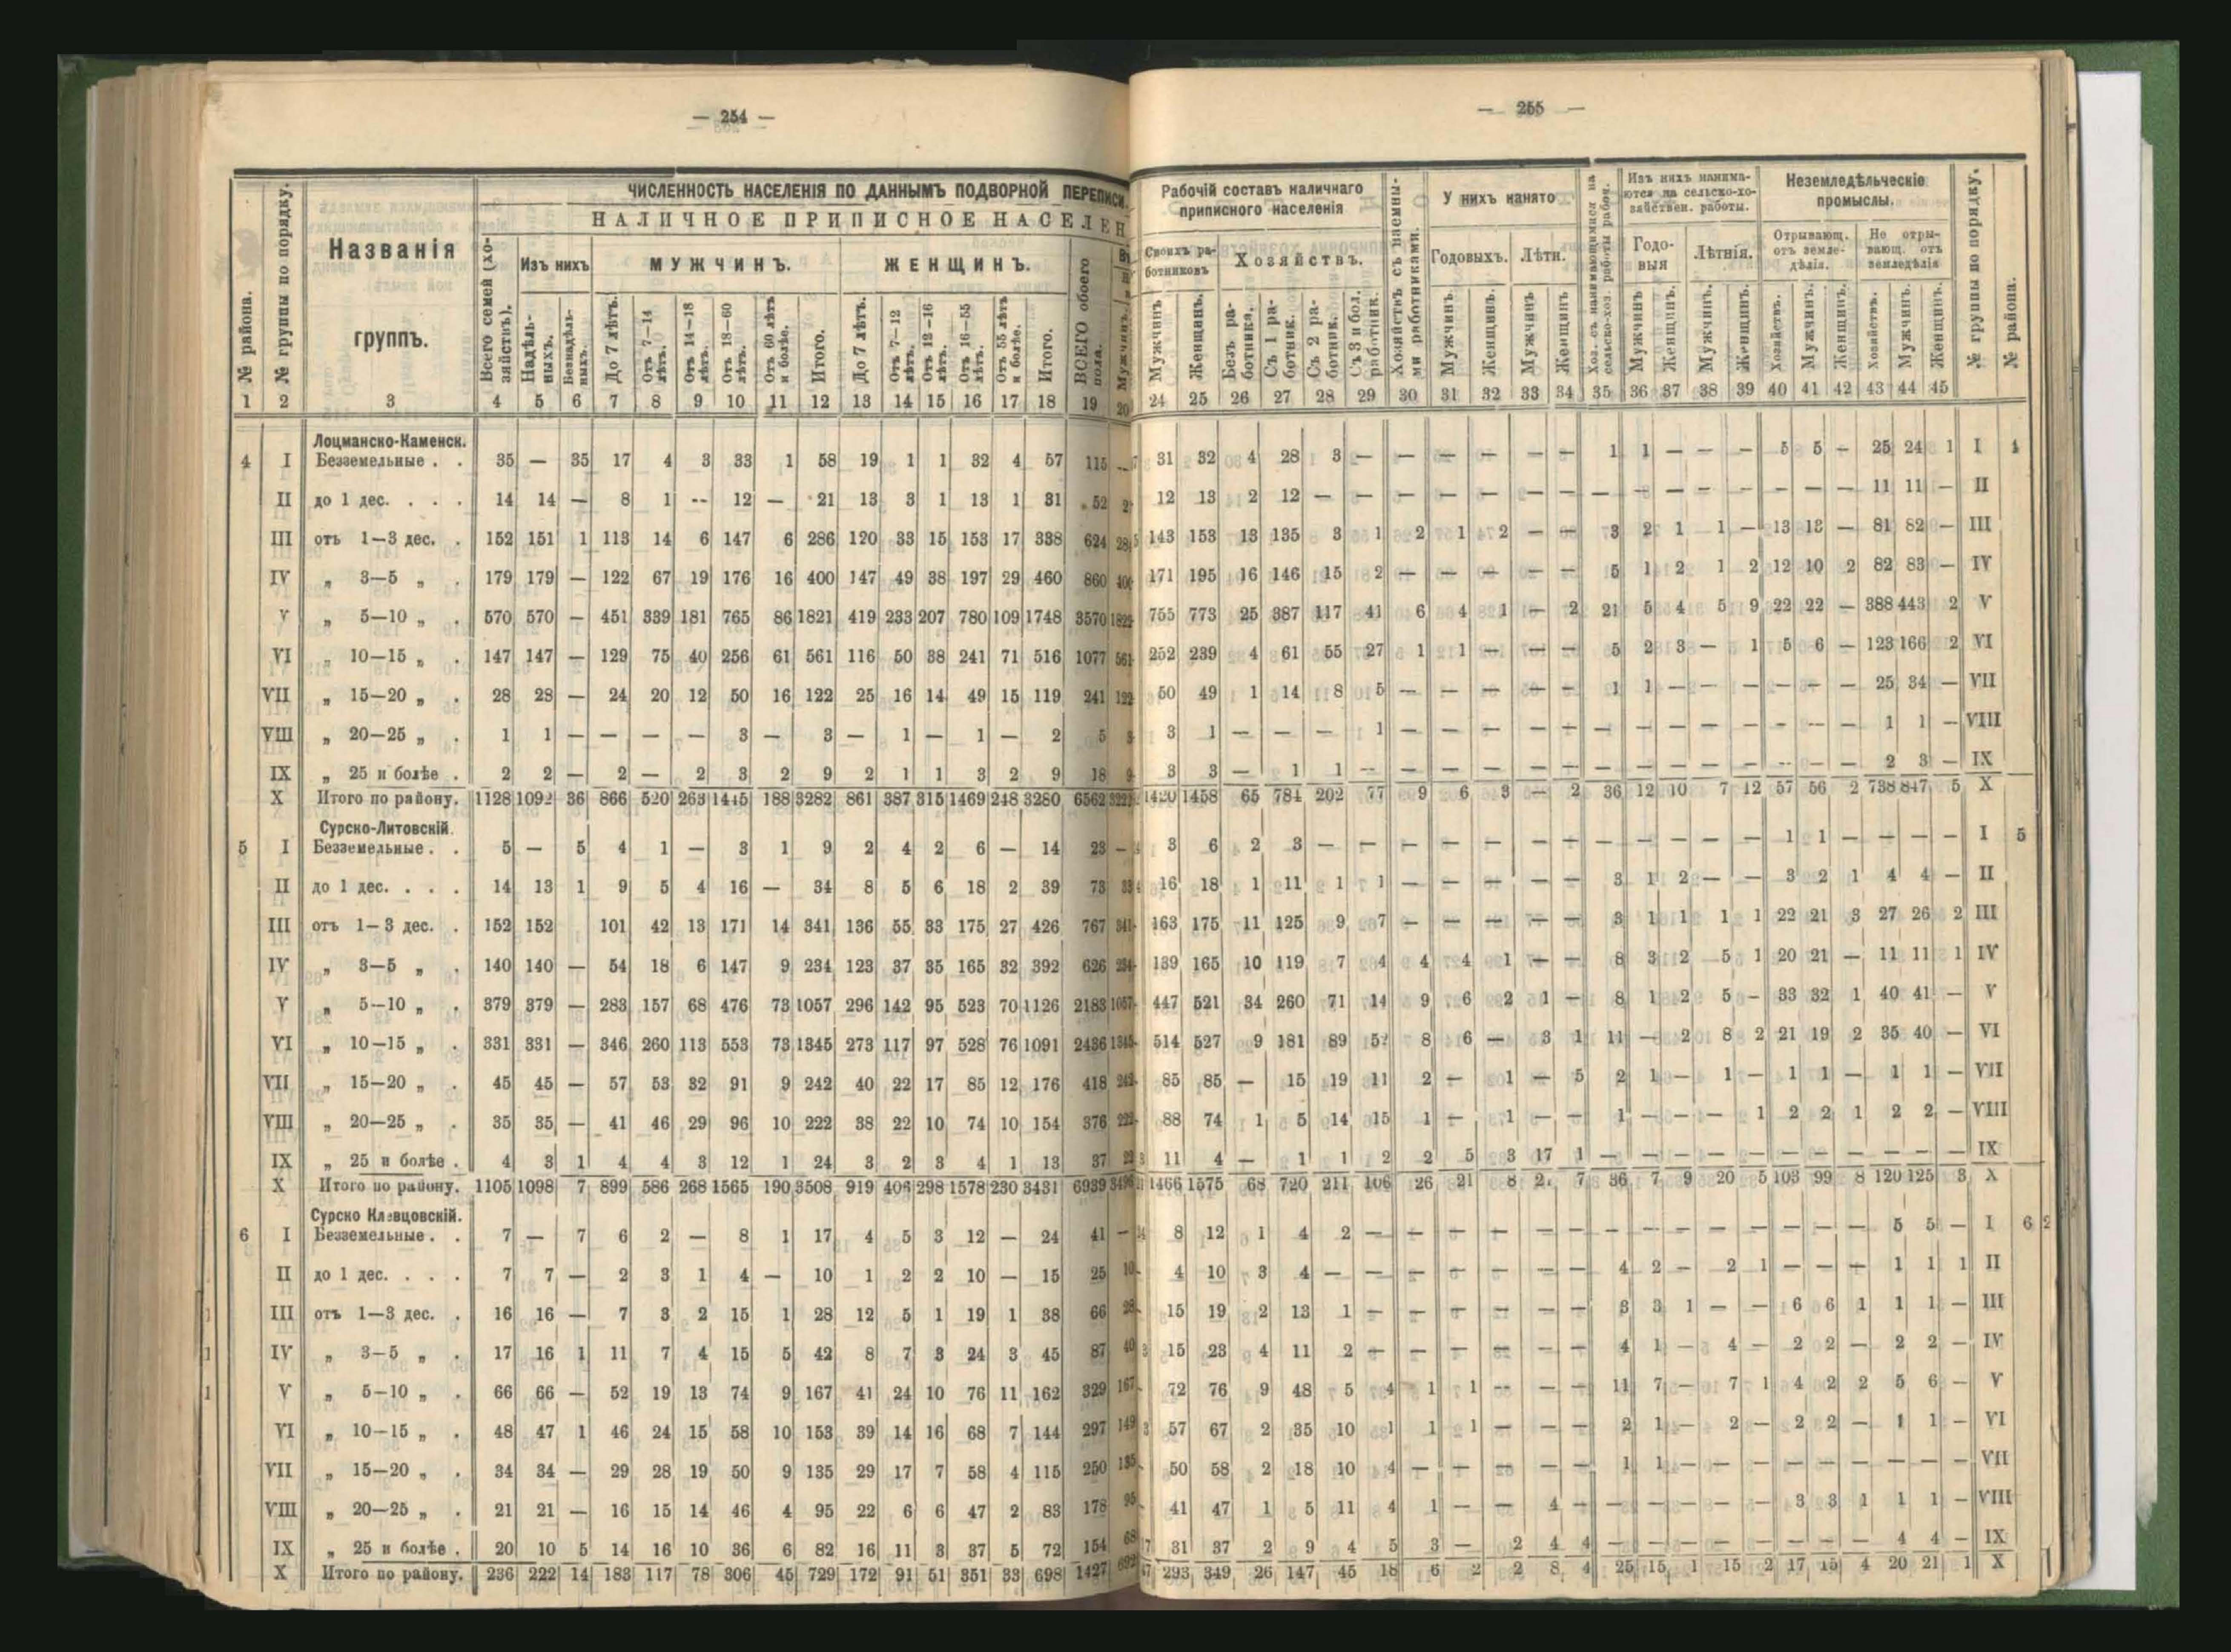 — 254 —
ЧИСЛЕННОСТЬ НАСЕЛЕНІЯ ПО ДАННЫМЪ ПОДВОРНОЙ ПЕРЕПИСИ.
НАЛИЧНОЕ ПРИПИСНОЕ НАСЕЛЕН
№ района. № группы по порядку. Названія группъ. Всего семей (хозяйствъ). Изъ нихъ МУЖЧИНЪ. ЖЕНЩИНЪ. ВСЕГО обоего пола.
Надѣльныхъ. Безнадѣльныхъ. До 7 лѣтъ. Отъ 7—14 лѣтъ. Отъ 14—18 лѣтъ. Отъ 18—60 лѣтъ. Отъ 60 лѣтъ и болѣе. Итого. До 7 лѣтъ. Отъ 7—12 лѣтъ. Отъ 12—16 лѣтъ. Отъ 16—55 лѣтъ. Отъ 55 лѣтъ и болѣе. Итого. Мужчинъ.
1 2 3 4 5 6 7 8 9 10 11 12 13 14 15 16 17 18 19 20
Лоцманско-Каменск.
4 I Безземельные . . 35 — 35 17 4 3 33 1 58 19 1 1 32 4 57 115
II до 1 дес. . . . 14 14 — 8 1 -- 12 — 21 13 3 1 13 1 31 52
III отъ 1—3 дес. . 152 151 1 113 14 6 147 6 286 120 33 15 153 17 338 624
IV „ 3—5 „ . 179 179 — 122 67 19 176 16 400 147 49 38 197 29 460 860
V „ 5—10 „ . 570 570 — 451 339 181 765 86 1821 419 233 207 780 109 1748 3570
VI „ 10—15 „ . 147 147 — 129 75 40 256 61 561 116 50 38 241 71 516 1077 561
VII „ 15—20 „ . 28 28 — 24 20 12 50 16 122 25 16 14 49 15 119 241 122
VIII „ 20—25 „ . 1 1 — — — — 3 — 3 — 1 — 1 — 2 5 3
IX „ 25 и болѣе . 2 2 — 2 — 2 3 2 9 2 1 1 3 2 9 18 9
X Итого по району. 1128 1092 36 866 520 263 1445 188 3282 861 387 315 1469 248 3280 6562
Сурско-Литовскій.
5 I Безземельные . . 5 — 5 4 1 — 3 1 9 2 4 2 6 — 14 23 —
II до 1 дес. . . . 14 13 1 9 5 4 16 — 34 8 5 6 18 2 39 73
III отъ 1—3 дес. . 152 152 101 42 13 171 14 341 136 55 33 175 27 426 767 341
IV „ 3—5 „ . 140 140 — 54 18 6 147 9 234 123 37 35 165 32 392 626 234
V „ 5—10 „ . 379 379 — 283 157 68 476 73 1057 296 142 95 523 70 1126 2183 1057
VI „ 10—15 „ . 331 331 — 346 260 113 553 73 1345 273 117 97 528 76 1091 2436 1345
VII „ 15—20 „ . 45 45 — 57 53 32 91 9 242 40 22 17 85 12 176 418 242
VIII „ 20—25 „ . 35 35 — 41 46 29 96 10 222 38 22 10 74 10 154 376 222
IX „ 25 и болѣе . 4 3 1 4 4 3 12 1 24 3 2 3 4 1 13 37
X Итого по району. 1105 1098 7 899 586 268 1565 190 3508 919 406 298 1578 230 3431 6939
Сурско Клевцовскій.
6 I Безземельные . . 7 — 7 6 2 — 8 1 17 4 5 3 12 — 24 41 —
II до 1 дес. . . . 7 7 — 2 3 1 4 — 10 1 2 2 10 — 15 25 10
III отъ 1—3 дес. . 16 16 — 7 3 2 15 1 28 12 5 1 19 1 38 66 28
IV „ 3—5 „ . 17 16 1 11 7 4 15 5 42 8 7 3 24 3 45 87 40
V „ 5—10 „ . 66 66 — 52 19 13 74 9 167 41 24 10 76 11 162 329 167
VI „ 10—15 „ . 48 47 1 46 24 15 58 10 153 39 14 16 68 7 144 297 149
VII „ 15—20 „ . 34 34 — 29 28 19 50 9 135 29 17 7 58 4 115 250 135
VIII „ 20—25 „ . 21 21 — 16 15 14 46 4 95 22 6 6 47 2 83 178 95
IX „ 25 и болѣе . 20 10 5 14 16 10 36 6 82 16 11 3 37 5 72 154 68
X Итого по району. 236 222 14 183 117 78 306 45 729 172 91 51 351 33 698 1427 692
— 255 —
Рабочій составъ наличнаго приписного населенія Хозяйствъ съ наемными работниками. У нихъ нанято Хоз. съ нанимающимися на сельско-хоз. работы рабоч. Изъ нихъ нанимаются на сельско-хозяйствен. работы. Неземледѣльческіе промыслы. № группы по порядку. № района.
Своихъ работниковъ Хозяйствъ. Годовыхъ. Лѣтн. Годовыя Лѣтнія. Отрывающ. отъ земледѣлія. Не отрывающ. отъ земледѣлія
Мужчинъ Женщинъ. Безъ работника. Съ 1 работник. Съ 2 работник. Съ 3 и бол. работник. Мужчинъ. Женщинъ. Мужчинъ Женщинъ Мужчинъ Женщинъ. Мужчинъ. Женщинъ. Хозяйствъ. Мужчинъ. Женщинъ. Хозяйствъ. Мужчинъ. Женщинъ.
24 25 26 27 28 29 30 31 32 33 34 35 36 37 38 39 40 41 42 43 44 45
31 32 4 28 3 — — — — — — 1 1 — — — 5 5 — 25 24 1 I 4
12 13 2 12 — — — — — — — — — — — — — — — 11 11 — II
143 153 13 135 3 1 2 1 2 — — 3 2 1 1 — 13 13 — 81 82 — III
171 195 16 146 15 2 — — — — — 5 1 2 1 2 12 10 2 82 83 — IV
755 773 25 387 117 41 6 4 1 — 2 21 5 4 5 9 22 22 — 388 443 2 V
252 239 4 61 55 27 1 1 — — — 5 2 3 — 1 5 6 — 123 166 2 VI
50 49 1 14 8 5 — — — — — 1 1 — — — — — — 25 34 — VII
3 1 — — — 1 — — — — — — — — — — — — — 1 1 — VIII
3 3 — 1 1 — — — — — — — — — — — — — — 2 3 — IX
1420 1458 65 784 202 77 9 6 3 — 2 36 12 10 7 12 57 56 2 738 847 5 X
3 6 2 3 — — — — — — — — — — — — 1 1 — — — — I 5
16 18 1 11 1 1 — — — — — 3 1 2 — — 3 2 1 4 4 — II
163 175 11 125 9 7 — — — — — 3 1 1 1 1 22 21 3 27 26 2 III
139 165 10 119 7 4 4 4 1 — — 8 3 2 5 1 20 21 — 11 11 1 IV
447 521 34 260 71 14 9 6 2 1 — 8 1 2 5 — 33 32 1 40 41 — V
514 527 9 181 89 52 8 6 — 3 1 11 — 2 8 2 21 19 2 35 40 — VI
85 85 — 15 19 11 2 — 1 — 5 2 1 — 1 — 1 1 — 1 1 — VII
88 74 1 5 14 15 1 — 1 — — 1 — — — 1 2 2 1 2 2 — VIII
11 4 — 1 1 2 2 5 3 17 1 — — — — — — — — — — — IX
1466 1575 68 720 211 106 26 21 8 7 36 7 9 20 5 103 99 8 120 125 3 X
8 12 1 4 2 — — — — — — — — — — — — — — 5 5 — I 6
4 10 3 4 — — — — — — — 4 2 — 2 1 — — — 1 1 1 II
15 19 2 13 1 — — — — — — 3 3 1 — — 6 6 1 1 1 — III
15 23 4 11 2 — — — — — — 4 1 — 4 — 2 2 — 2 2 — IV
72 76 9 48 5 4 1 1 — — — 11 7 — 7 1 4 2 2 5 6 — V
57 67 2 35 10 1 1 1 — — — 2 1 — 2 — 2 2 — 1 1 — VI
50 58 2 18 10 4 — — — — — 1 1 — — — — — — — — — VII
41 47 1 5 11 4 1 — — 4 — — — — — — 3 3 1 1 1 — VIII
31 37 2 9 4 5 3 — 2 4 4 — — — — — — — — 4 4 — IX
293 349 26 147 45 18 6 2 2 8 4 25 15 1 15 2 17 15 4 20 21 1 X